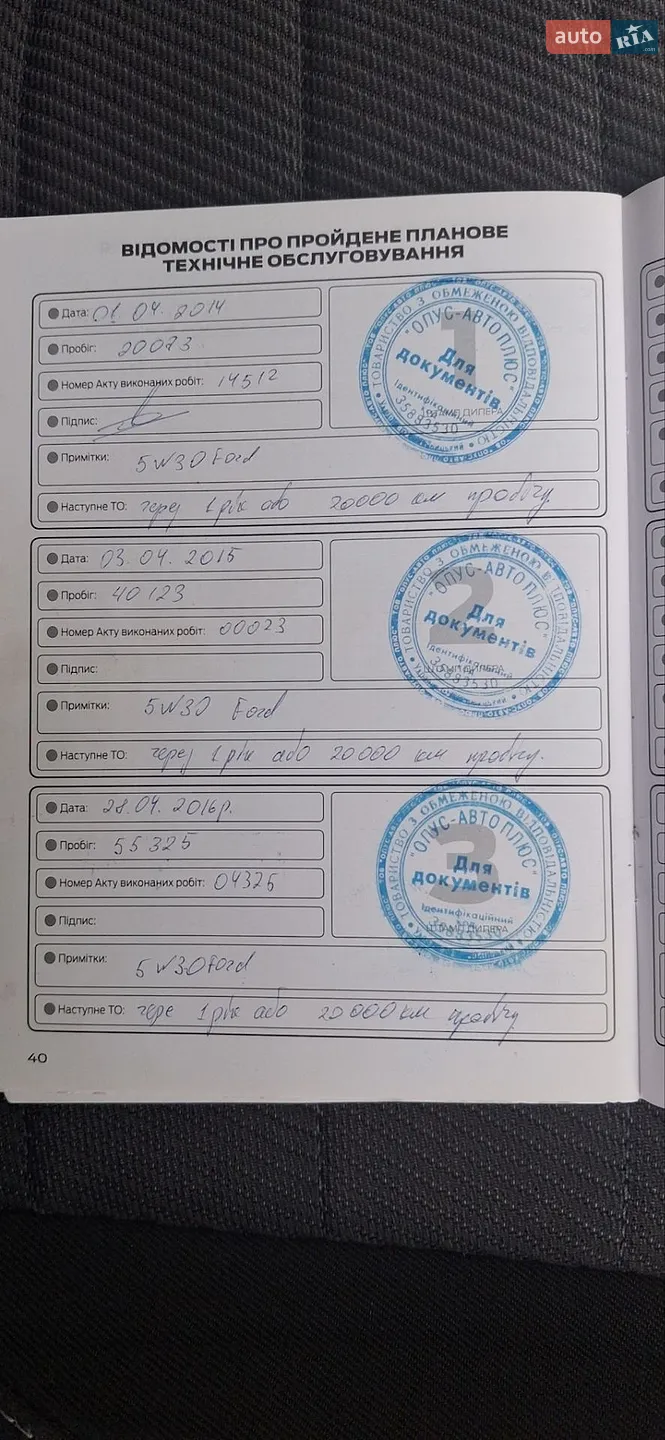 auto RIA .com
ВІДОМОСТІ ПРО ПРОЙДЕНЕ ПЛАНОВЕ
ТЕХНІЧНЕ ОБСЛУГОВУВАННЯ
Дата: 01 04. 2014
Пробіг: 20073
Номер Акту виконаних робіт: 14512
Підпис:
Примітки: 5W30 Ford
Наступне ТО: через 1 рік або 20000 км пробігу.
1
ТОВАРИСТВО З ОБМЕЖЕНОЮ ВІДПОВІДАЛЬНІСТЮ
"ОПУС-АВТО ПЛЮС"
Для
документів
Ідентифікаційний
35893530
ШТАМП ДИЛЕРА
Дата: 03. 04. 2015
Пробіг: 40123
Номер Акту виконаних робіт: 00023
Підпис:
Примітки: 5W30 Ford
Наступне ТО: через 1 рік або 20000 км пробігу.
2
ТОВАРИСТВО З ОБМЕЖЕНОЮ ВІДПОВІДАЛЬНІСТЮ
"ОПУС-АВТО ПЛЮС"
Для
документів
Ідентифікаційний
35893530
Дата: 28. 04. 2016р.
Пробіг: 55325
Номер Акту виконаних робіт: 04325
Підпис:
Примітки: 5W30 Ford
Наступне ТО: чере 1 рік або 20000 км пробігу
3
ТОВАРИСТВО З ОБМЕЖЕНОЮ ВІДПОВІДАЛЬНІСТЮ
"ОПУС-АВТО ПЛЮС"
Для
документів
Ідентифікаційний
35893530
ШТАМП ДИЛЕРА
40